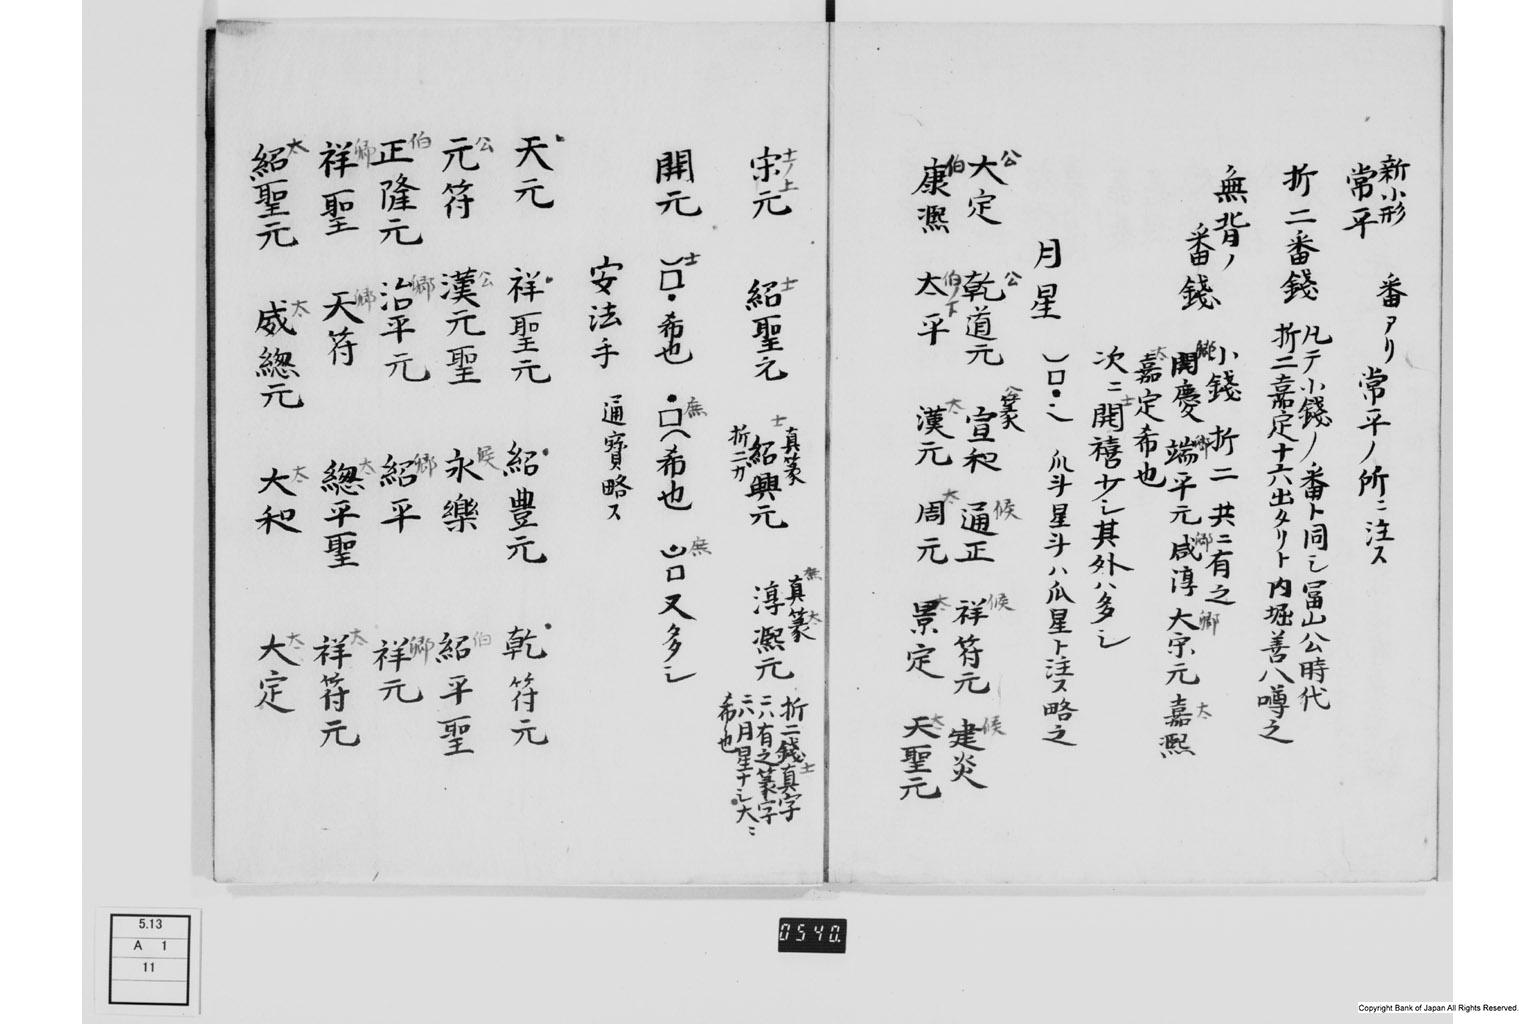 新小形
常平 番アリ 常平ノ所ニ注ス
折二番錢 凡テ小錢ノ番ト同シ冨山公時代
折二嘉定十六出タリト内堀善八噂之
無背ノ
番錢 小錢 折二 共ニ有之
卿 開慶 卿 端平元 卿 咸淳 卿 大宋元 太 嘉熙
太 嘉定希也
次ニ 士 開禧少シ其外ハ多シ
月星 爪斗星斗ハ瓜星ト注ス略之
公 大定 公 乾道元 篆 宣和 候 通正 候 祥符元 候 建炎
伯 康熙 伯ノ下 太平 太 漢元 太 周元 太 景定 太 天聖元
士ノ上 宋元 士 紹聖元 士 真篆 紹興元 折二カ 真篆 淳熙元
折二錢真字
ニハ有之篆字
ニハ月星ナシ大ニ
希也
開元 士 希也 庶 希也 庶 又多シ
安法手 通寳略ス
天元 祥聖元 紹豊元 乾符元
公 元符 公 漢元聖 候 永樂 伯 紹平聖
伯 正隆元 卿 治平元 卿 紹平 卿 祥元
卿 祥聖 卿 天符 太 總平聖 太 祥符元
太 紹聖元 太 咸總元 太 大和 太 大定
5.13
A 1
11
0540.
Copyright Bank of Japan All Rights Reserved.